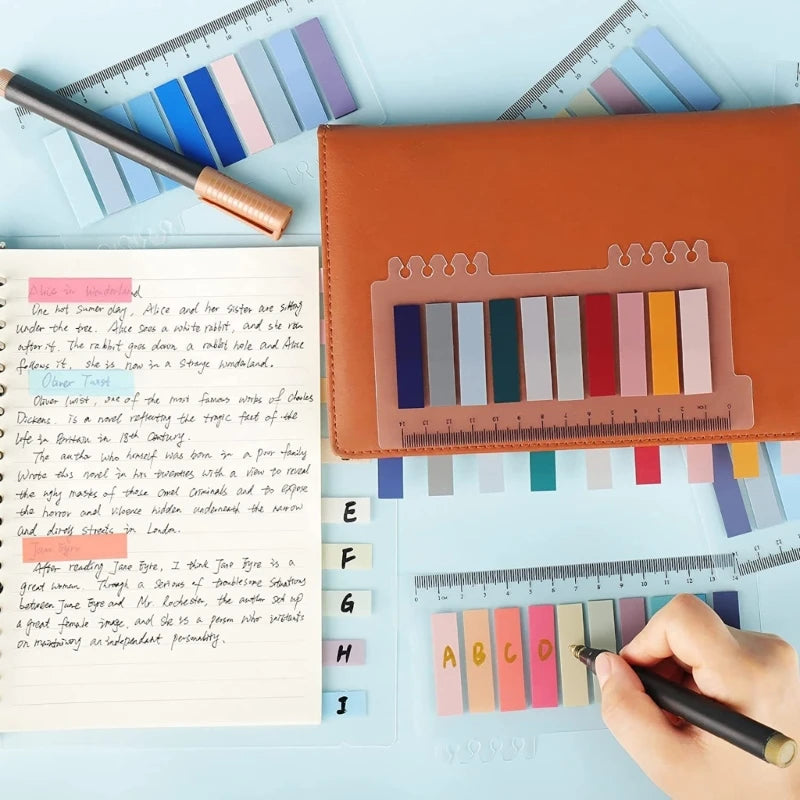 Alice in Wonderland
One hot sumer day, Alice and her sister are sitting
under the tree. Alice sees a white rabbit, and she run
after it. The rabbit goes down a rabbit hole and Alice
follows it, she is now in a strange wonderland.
Oliver Twist
Oliver Twist, one of the most famous works of Charles
Dickens. is a novel reflecting the tragic fact of the
life in Britain in 18th Century.
The author who himself was born in a poor family
wrote this novel in his twenties with a view to reveal
the ugly masks of those cruel criminals and to expose
the horror and violence hidden underneath the narrow
and dirty streets in London.
Jane Eyre
After reading Jane Eyre, I think Jane Eyre is a
great woman. Through a serious of troublesome situations
between Jane Eyre and Mr. Rochester, the author set up
a great female image, and she is a person who insistents
on maintaining an independant personality.
E
F
G
H
I
14 13 12 11 10 9 8 7 6 5 4 3 2 1cm 0
0 1cm 2 3 4 5 6 7 8 9 10 11 12 13 14
A B C D